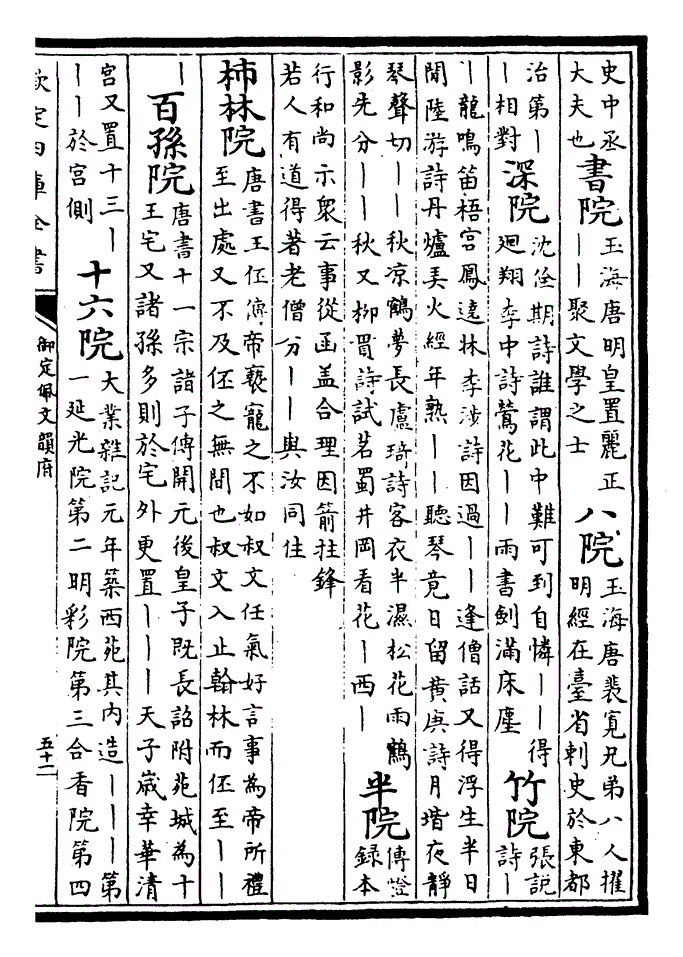 史中丞
大夫也
書院
玉海唐明皇置麗正
丨丨聚文學之士
八院
玉海唐裴寬兄弟八人擢
明經在臺省刺史於東都
治第丨
丨相對
深院
沈佺期詩誰謂此中難可到自憐丨丨得
廻翔李中詩鶯花丨丨雨書劍滿床塵
竹院
張説
詩丨
丨龍鳴笛梧宮鳳遶林李渉詩因過丨丨逢僧話又得浮生半日
閒陸游詩丹爐美火經年熟丨丨聽琴竟日留黄庚詩月堦夜靜
琴聲切丨丨秋凉鶴夢長盧琦詩客衣半濕松花雨鶴
影先分丨丨秋又柳貫詩試茗蜀井岡看花丨西丨
半院
傳燈
録本
行和尚示衆云事從函盖合理因箭拄鋒
若人有道得著老僧分丨丨與汝同住
柿林院
唐書王伾傳帝褻寵之不如叔文任氣好言事為帝所禮
至出處又不及伾之無間也叔文入止翰林而伾至丨丨
丨
百孫院
唐書十一宗諸子傳開元後皇子既長詔附苑城為十
王宅又諸孫多則於宅外更置丨丨丨天子歳幸華清
宮又置十三丨
丨丨於宮側
十六院
大業雜記元年築西苑其内造丨丨丨第
一延光院第二明彩院第三合香院第四
欽定四庫全書
御定佩文韻府
五十二